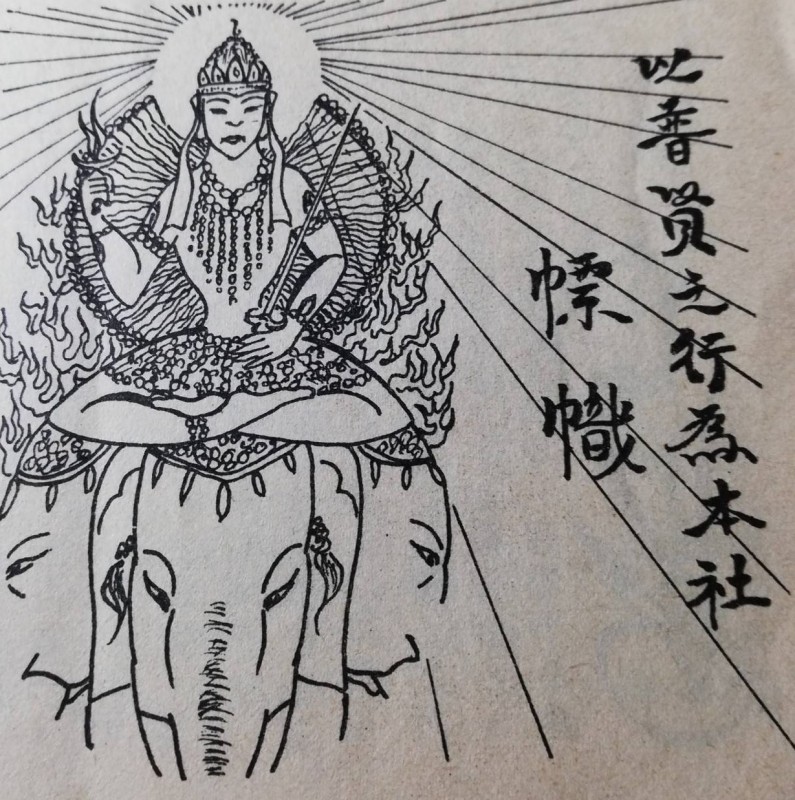 以普贤之行為本社
幖幟